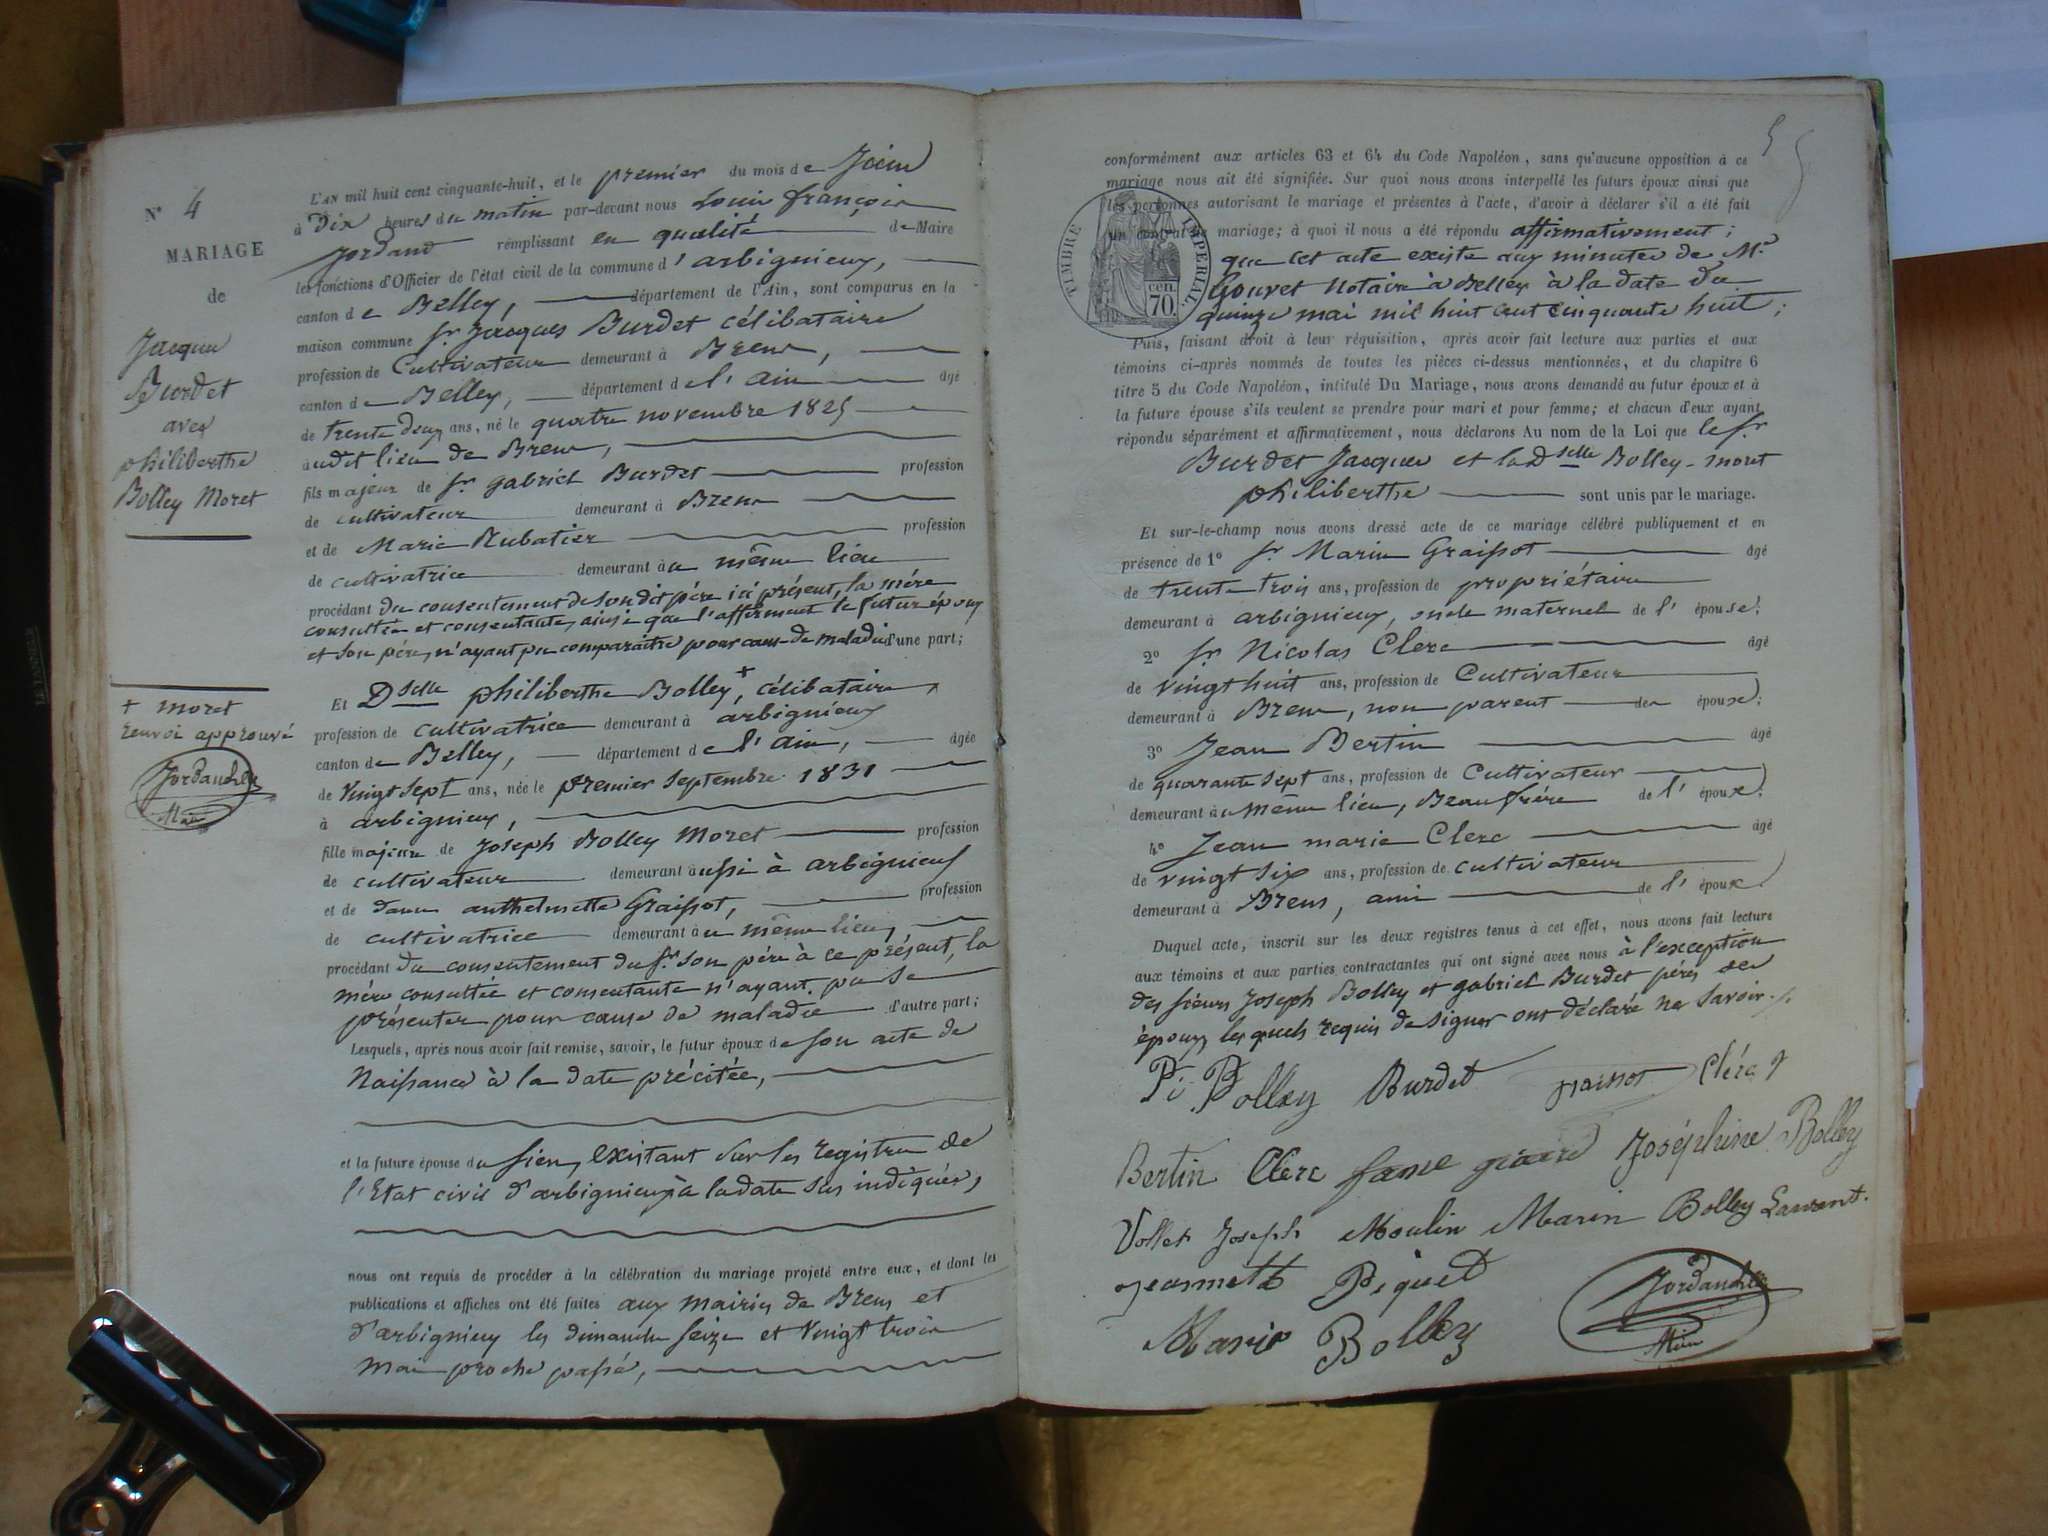 N° 4
MARIAGE
de
Jacques
Burdet
avec
philiberthe
Bolley Moret
+ moret
renvoi approuvé
Jordan
Maire
L'AN mil huit cent cinquante-huit, et le premier du mois de Juin
à Dix heures du matin par-devant nous Louis françois
Jordand remplissant en qualité de Maire
les fonctions d'Officier de l'état civil de la commune d'arbignieux,
canton de Belley, département de l'Ain, sont comparus en la
maison commune Sr Jacques Burdet célibataire
profession de Cultivateur demeurant à Brens,
canton de Belley, département de l'ain âgé
de trente deux ans, né le quatre novembre 1825
audit lieu de Brens,
fils majeur de Sr gabriel Burdet profession
de cultivateur demeurant à Brens
et de Marie Rubatier profession
de cultivatrice demeurant au même lieu
procédant du consentement de son dit père ici présent, la mère
consultée et consentante, ainsi que l'affirment le futur époux
et son père, n'ayant pu comparaitre pour cause de maladie d'une part;
Et Dselle philiberthe Bolley +, célibataire,
profession de cultivatrice demeurant à arbignieux
canton de Belley, département de l'ain, âgée
de Vingt sept ans, née le premier septembre 1831
à arbignieux,
fille majeure de Joseph Bolley Moret profession
de cultivateur demeurant aussi à arbignieux
et de dame anthelmette Graissot, profession
de cultivatrice demeurant au même lieu,
procédant du consentement du Sr son père à ce présent, la
mère consultée et consentante n'ayant pu se
présenter pour cause de maladie d'autre part;
Lesquels, après nous avoir fait remise, savoir, le futur époux de son acte de
Naissance à la date précitée,
et la future épouse du sien, existant sur les registres de
l'Etat civil d'arbignieux à la date sus indiquée,
nous ont requis de procéder à la célébration du mariage projeté entre eux, et dont les
publications et affiches ont été faites aux mairies de Brens et
d'arbignieux les dimanches seize et vingt trois
mai proche passé,
5
conformément aux articles 63 et 64 du Code Napoléon, sans qu'aucune opposition à ce
mariage nous ait été signifiée. Sur quoi nous avons interpellé les futurs époux ainsi que
les personnes autorisant le mariage et présentes à l'acte, d'avoir à déclarer s'il a été fait
un contrat de mariage; à quoi il nous a été répondu affirmativement;
TIMBRE IMPÉRIAL
cen.
70.
que cet acte existe aux minutes de Me
Gouvet Notaire à Belley à la date du
quinze mai mil huit cent cinquante huit;
Puis, faisant droit à leur réquisition, après avoir fait lecture aux parties et aux
témoins ci-après nommés de toutes les pièces ci-dessus mentionnées, et du chapitre 6
titre 5 du Code Napoléon, intitulé Du Mariage, nous avons demandé au futur époux et à
la future épouse s'ils veulent se prendre pour mari et pour femme; et chacun d'eux ayant
répondu séparément et affirmativement, nous déclarons Au nom de la Loi que le Sr
Burdet Jacques et la Dselle Bolley-moret
philiberthe sont unis par le mariage.
Et sur-le-champ nous avons dressé acte de ce mariage célébré publiquement et en
présence de 1° Sr Marin Graissot âgé
de trente trois ans, profession de propriétaire
demeurant à arbignieux, oncle maternel de l'épouse;
2° Sr Nicolas Clerc âgé
de vingt huit ans, profession de Cultivateur
demeurant à Brens, non parent des époux;
3° Jean Bertin âgé
de quarante sept ans, profession de Cultivateur
demeurant au même lieu, Beau frère de l'époux;
4° Jean marie Clerc âgé
de vingt six ans, profession de cultivateur
demeurant à Brens, ami de l'époux
Duquel acte, inscrit sur les deux registres tenus à cet effet, nous avons fait lecture
aux témoins et aux parties contractantes qui ont signé avec nous à l'exception
des sieurs Joseph Bolley et gabriel Burdet pères des
époux, lesquels requis de signer ont déclaré ne savoir.
Pi Bolley Burdet graissot Clérc
Bertin Clerc Joséphine Bolley
Vollet Joseph Moulin Marin Bolley Laurent.
jeannette Piquet
Marie Bolley
Jordan
Maire